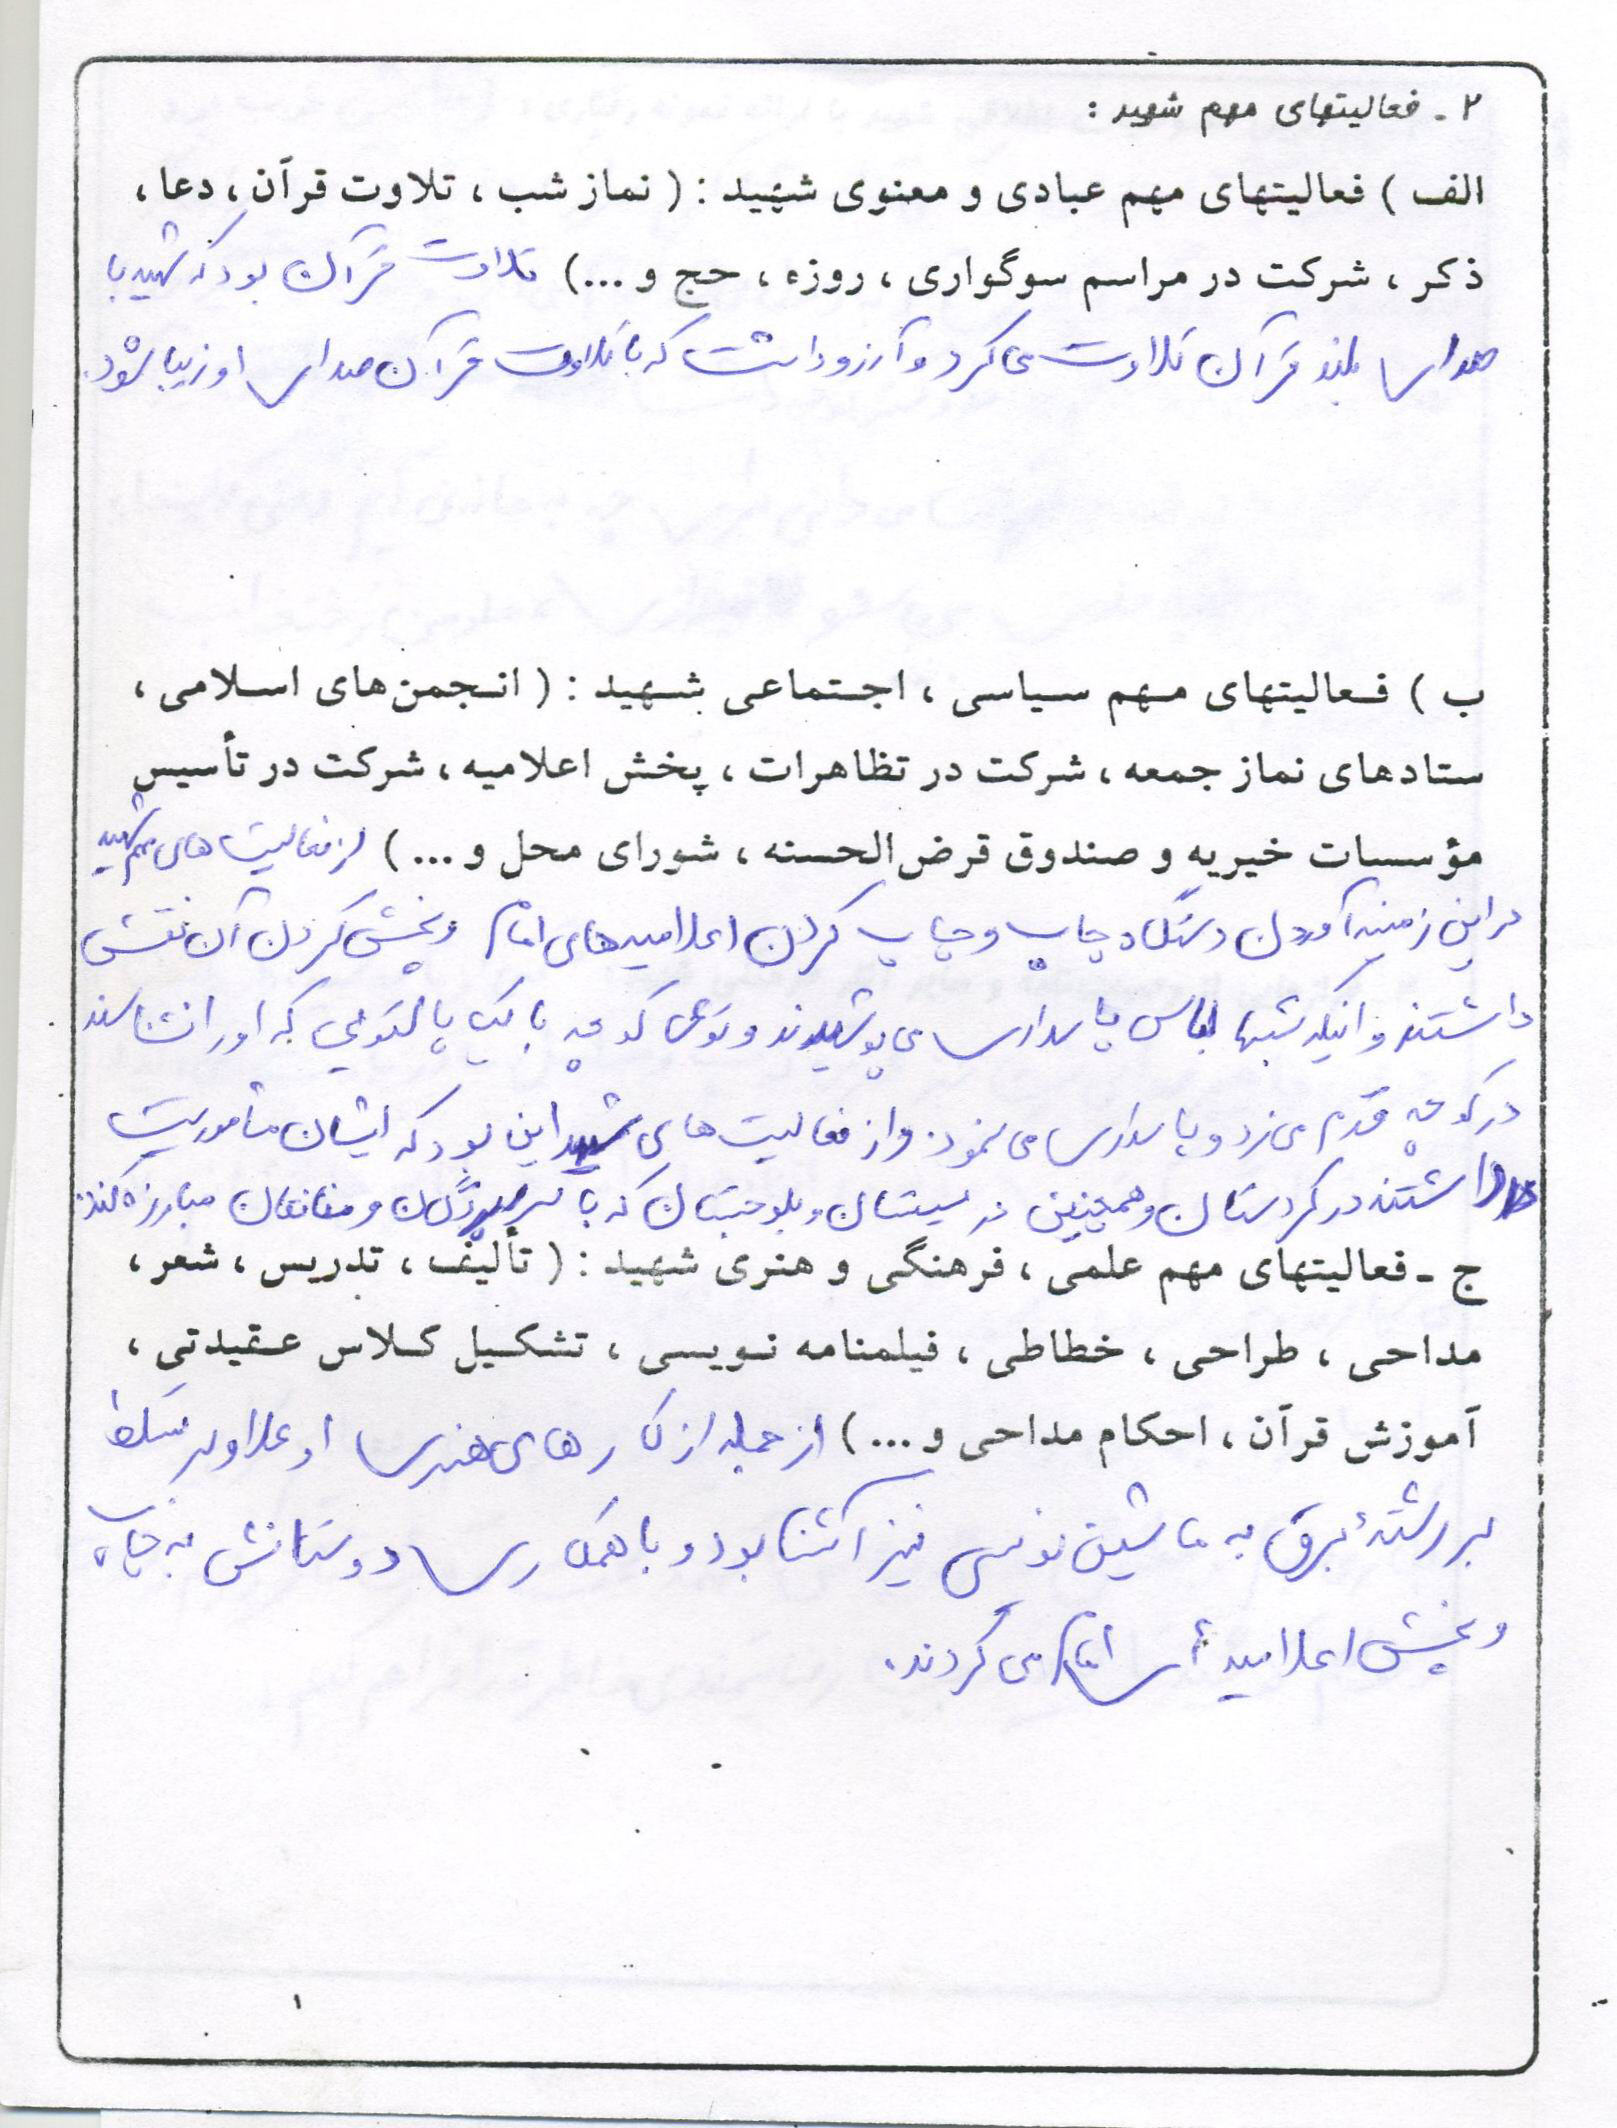 ۲ - فعالیتهای مهم شهید :
الف ) فعالیتهای مهم عبادی و معنوی شهید : ( نماز شب ، تلاوت قرآن ، دعا ،
ذکر ، شرکت در مراسم سوگواری ، روزه ، حج و ...) تلاوت قرآن بود که شهید با
صدای بلند قرآن تلاوت می کرد و آرزو داشت که با تلاوت قرآن صدای او زیبا شود.
ب ) فعالیتهای مهم سیاسی ، اجتماعی شهید : ( انجمن‌های اسلامی ،
ستادهای نماز جمعه ، شرکت در تظاهرات ، پخش اعلامیه ، شرکت در تأسیس
مؤسسات خیریه و صندوق قرض‌الحسنه ، شورای محل و ... ) از فعالیت های مهم شهید
در این زمینه آوردن دستگاه چاپ و چاپ کردن اعلامیه های امام و پخش کردن آن نقش
داشتند و اینکه شبها لباس پاسداری می پوشیدند و توی کوچه با یک پالتویی که او را نشناسند
در کوچه قدم می زد و پاسداری می نمود. و از فعالیت های شهید این بود که ایشان مأموریت
داشتند در کردستان و همچنین در سیستان و بلوچستان که با و منافقان مبارزه کند.
ج - فعالیتهای مهم علمی ، فرهنگی و هنری شهید : ( تألیف ، تدریس ، شعر ،
مداحی ، طراحی ، خطاطی ، فیلمنامه نویسی ، تشکیل کلاس عقیدتی ،
آموزش قرآن ، احکام مداحی و ... ) از جمله از کارهای هنری او علاوه بر تسلط
بر رشتهٔ برق به ماشین نویسی نیز آشنا بود و با همکاری دوستانش به چاپ
و پخش اعلامیه أی امام می کردند.
۱